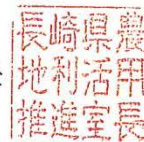 長崎県農
地利活用
推進室長